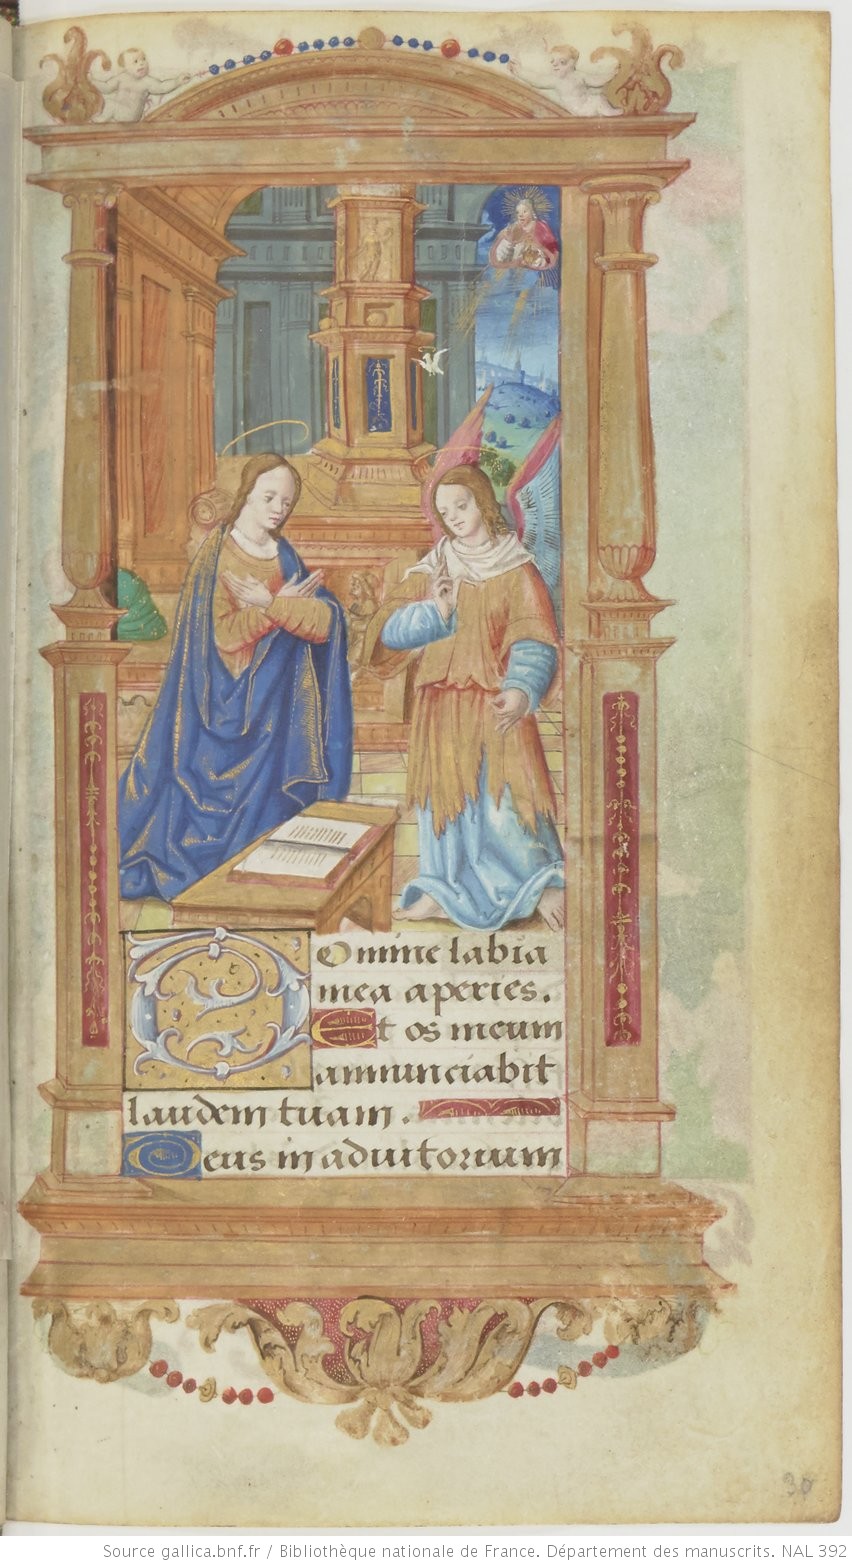 Domine labia
mea aperies.
Et os meum
annunciabit
laudem tuam.
Deus in adiutorium
30
Source gallica.bnf.fr / Bibliothèque nationale de France. Département des manuscrits. NAL 392